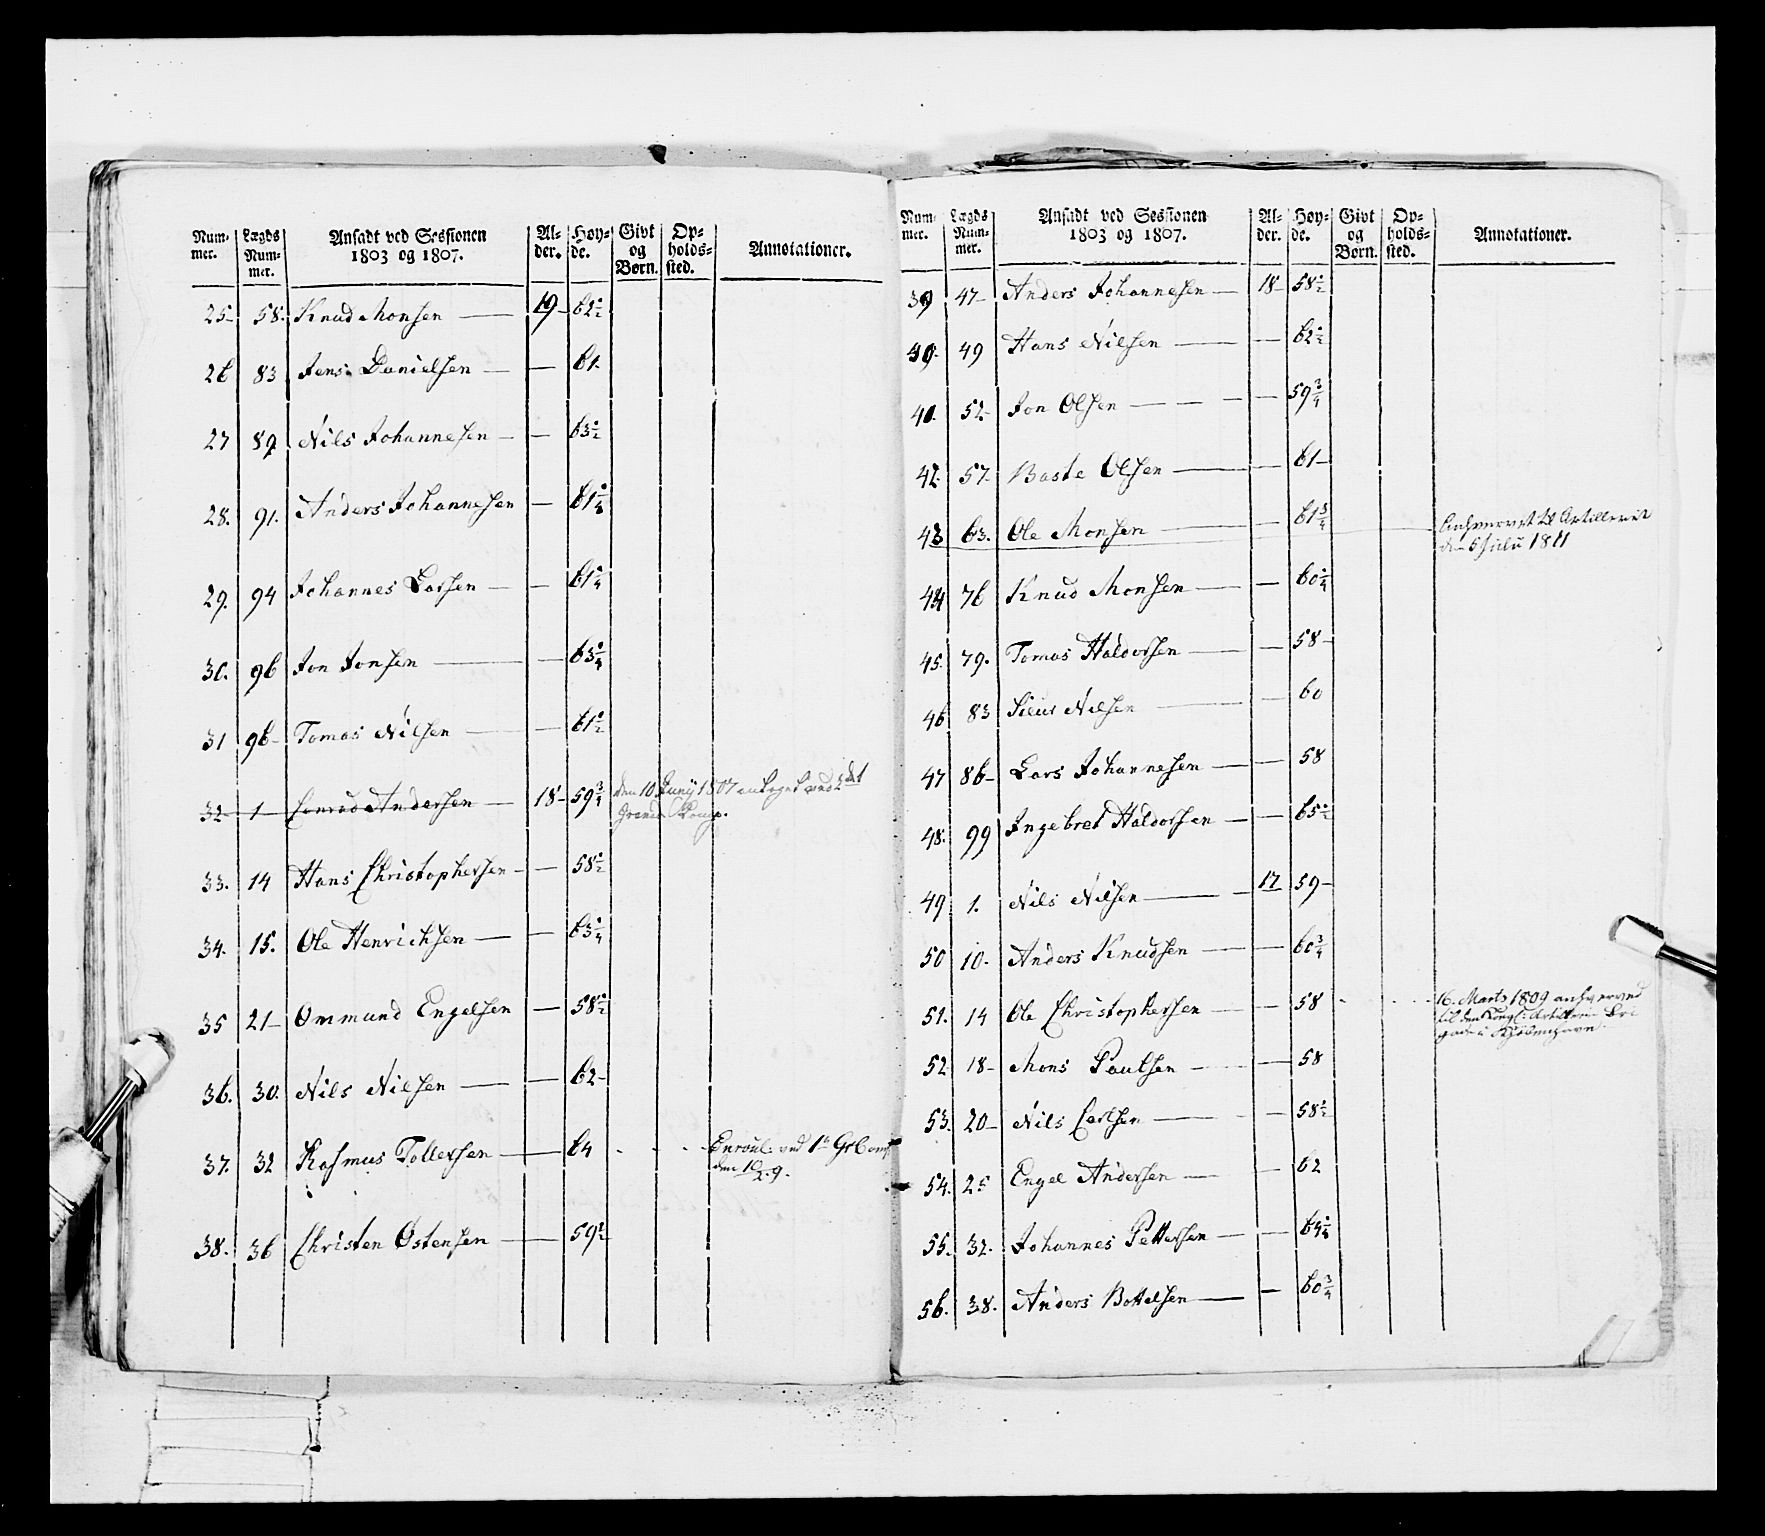 Num- mer. Lægds Num- mer. Ansadt ved Sessionen 1803 og 1807. Al- der. Høy- de. Givt og Børn. Op- holds- sted. Annotationer.
25 58. Knud Monsen 19 62½
26 83 Jens Danielsen — 61.
27 89 Nils Johannesen — 63½
28. 91. Anders Johannesen — 61¼
29. 94 Johannes Larsen — 61¼
30. 96 Jon Jonsen — 63¼
31 96 Tomas Nilsen — 61½
32 1 Conrad Andersen 18 59¾ den 10 Juny 1807 antaget ved 2det
Grenad Komp.
33. 14 Hans Christophersen — 58½
34. 15. Ole Henrichsen — 63¼
35 21 Ommund Engelsen — 58½
36. 30. Nils Nilsen — 62
37. 32 Rasmus Tollersen — 64 Enroul. ved 1te Gr Comp
den
38. 36 Christen Østensen — 59½
Num- mer. Lægds Num- mer. Ansadt ved Sessionen 1803 og 1807. Al- der. Høy- de. Givt og Børn. Op- holds- sted. Annotationer.
39 47 Anders Johannesen 18 58½
40. 49 Hans Nilsen — 62½
41. 52 Jon Olsen — 59¾
42 57 Baste Olsen — 61
43 63. Ole Monsen — 61¾ Anhvervet til Artilleriet
den 5 Julii 1811
44 76 Knud Monsen — 60¼
45. 79. Tomas Haldorsen — 58
46 83 Siur Nilsen — 60
47 86 Lars Johannesen — 58
48. 99 Ingebret Haldorsen — 65½
49 1. Nils Nilsen 17 59
50 10. Anders Knudsen — 60¾
51. 14 Ole Christophersen — 58 16. Marts 1809 anhverved
til den Kongl: Artillerie Bri
gade i Kjøbenhavn.
52 18 Mons Paulsen — 58
53. 20 Nils Carlsen — 58½
54. 25 Engel Andersen — 62
55. 32. Johannes Pettersen —
56. 38. Anders Bottelsen — 60¾